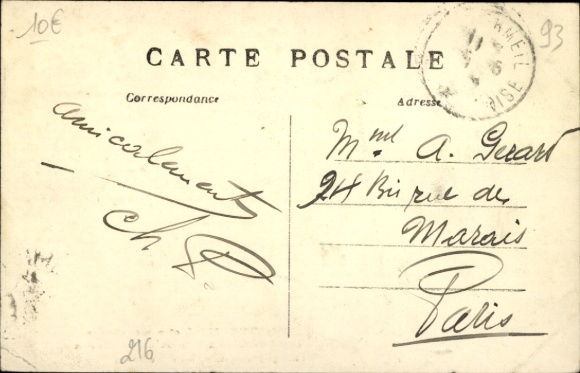 10€
93
CARTE POSTALE
Correspondance
Adresse
amicalement
ch P
Mme A. Gerard
24 Bis rue des
Marais
Paris
216